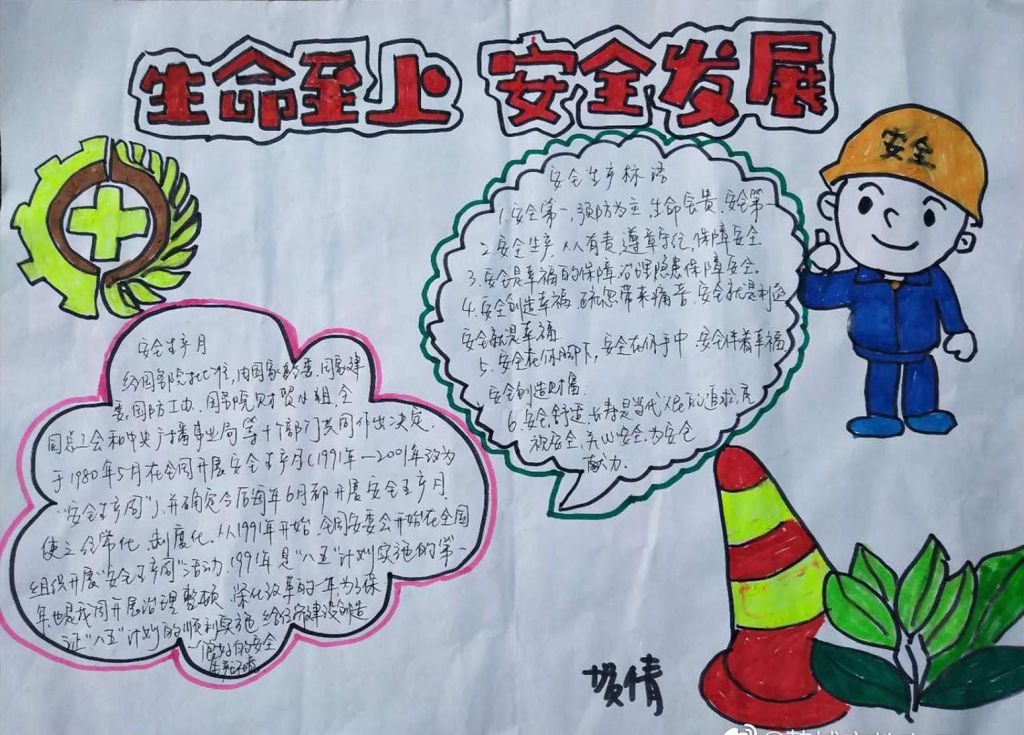 生命至上 安全发展
安全
安全生产标语
1.安全第一,预防为主,生命宝贵,安全第一
2.安全生产,人人有责,遵章守纪,保障安全.
3.安全是幸福的保障,治理隐患保障安全。
4.安全创造幸福,疏忽带来痛苦,安全就是利益
安全就是幸福
5.安全在你脚下,安全在你手中,安全伴着幸福
安全创造财富
6.安全,舒适,长寿是当代人民的追求,
安全,为安全
献力.
安全生产月
经国务院批准,由国家经委、国家建
委、国防工办、国务院财贸小组,全
国总工会和中央广播事业局等十个部门共同作出决定.
于1980年5月在全国开展安全生产月(1991年—2001年改为
"安全生产周"),并确定今后每年6月都开展安全生产月
使之经常化、制度化.从1991年开始,全国安委会开始在全国
组织开展"安全生产周"活动.1991年是"八五"计划实施的第一
年,也是我国开展治理整顿、深化改革的一年,为了保
证"八五"计划的顺利实施,给经济建设创造
一个良好的安全
生产环境
倩